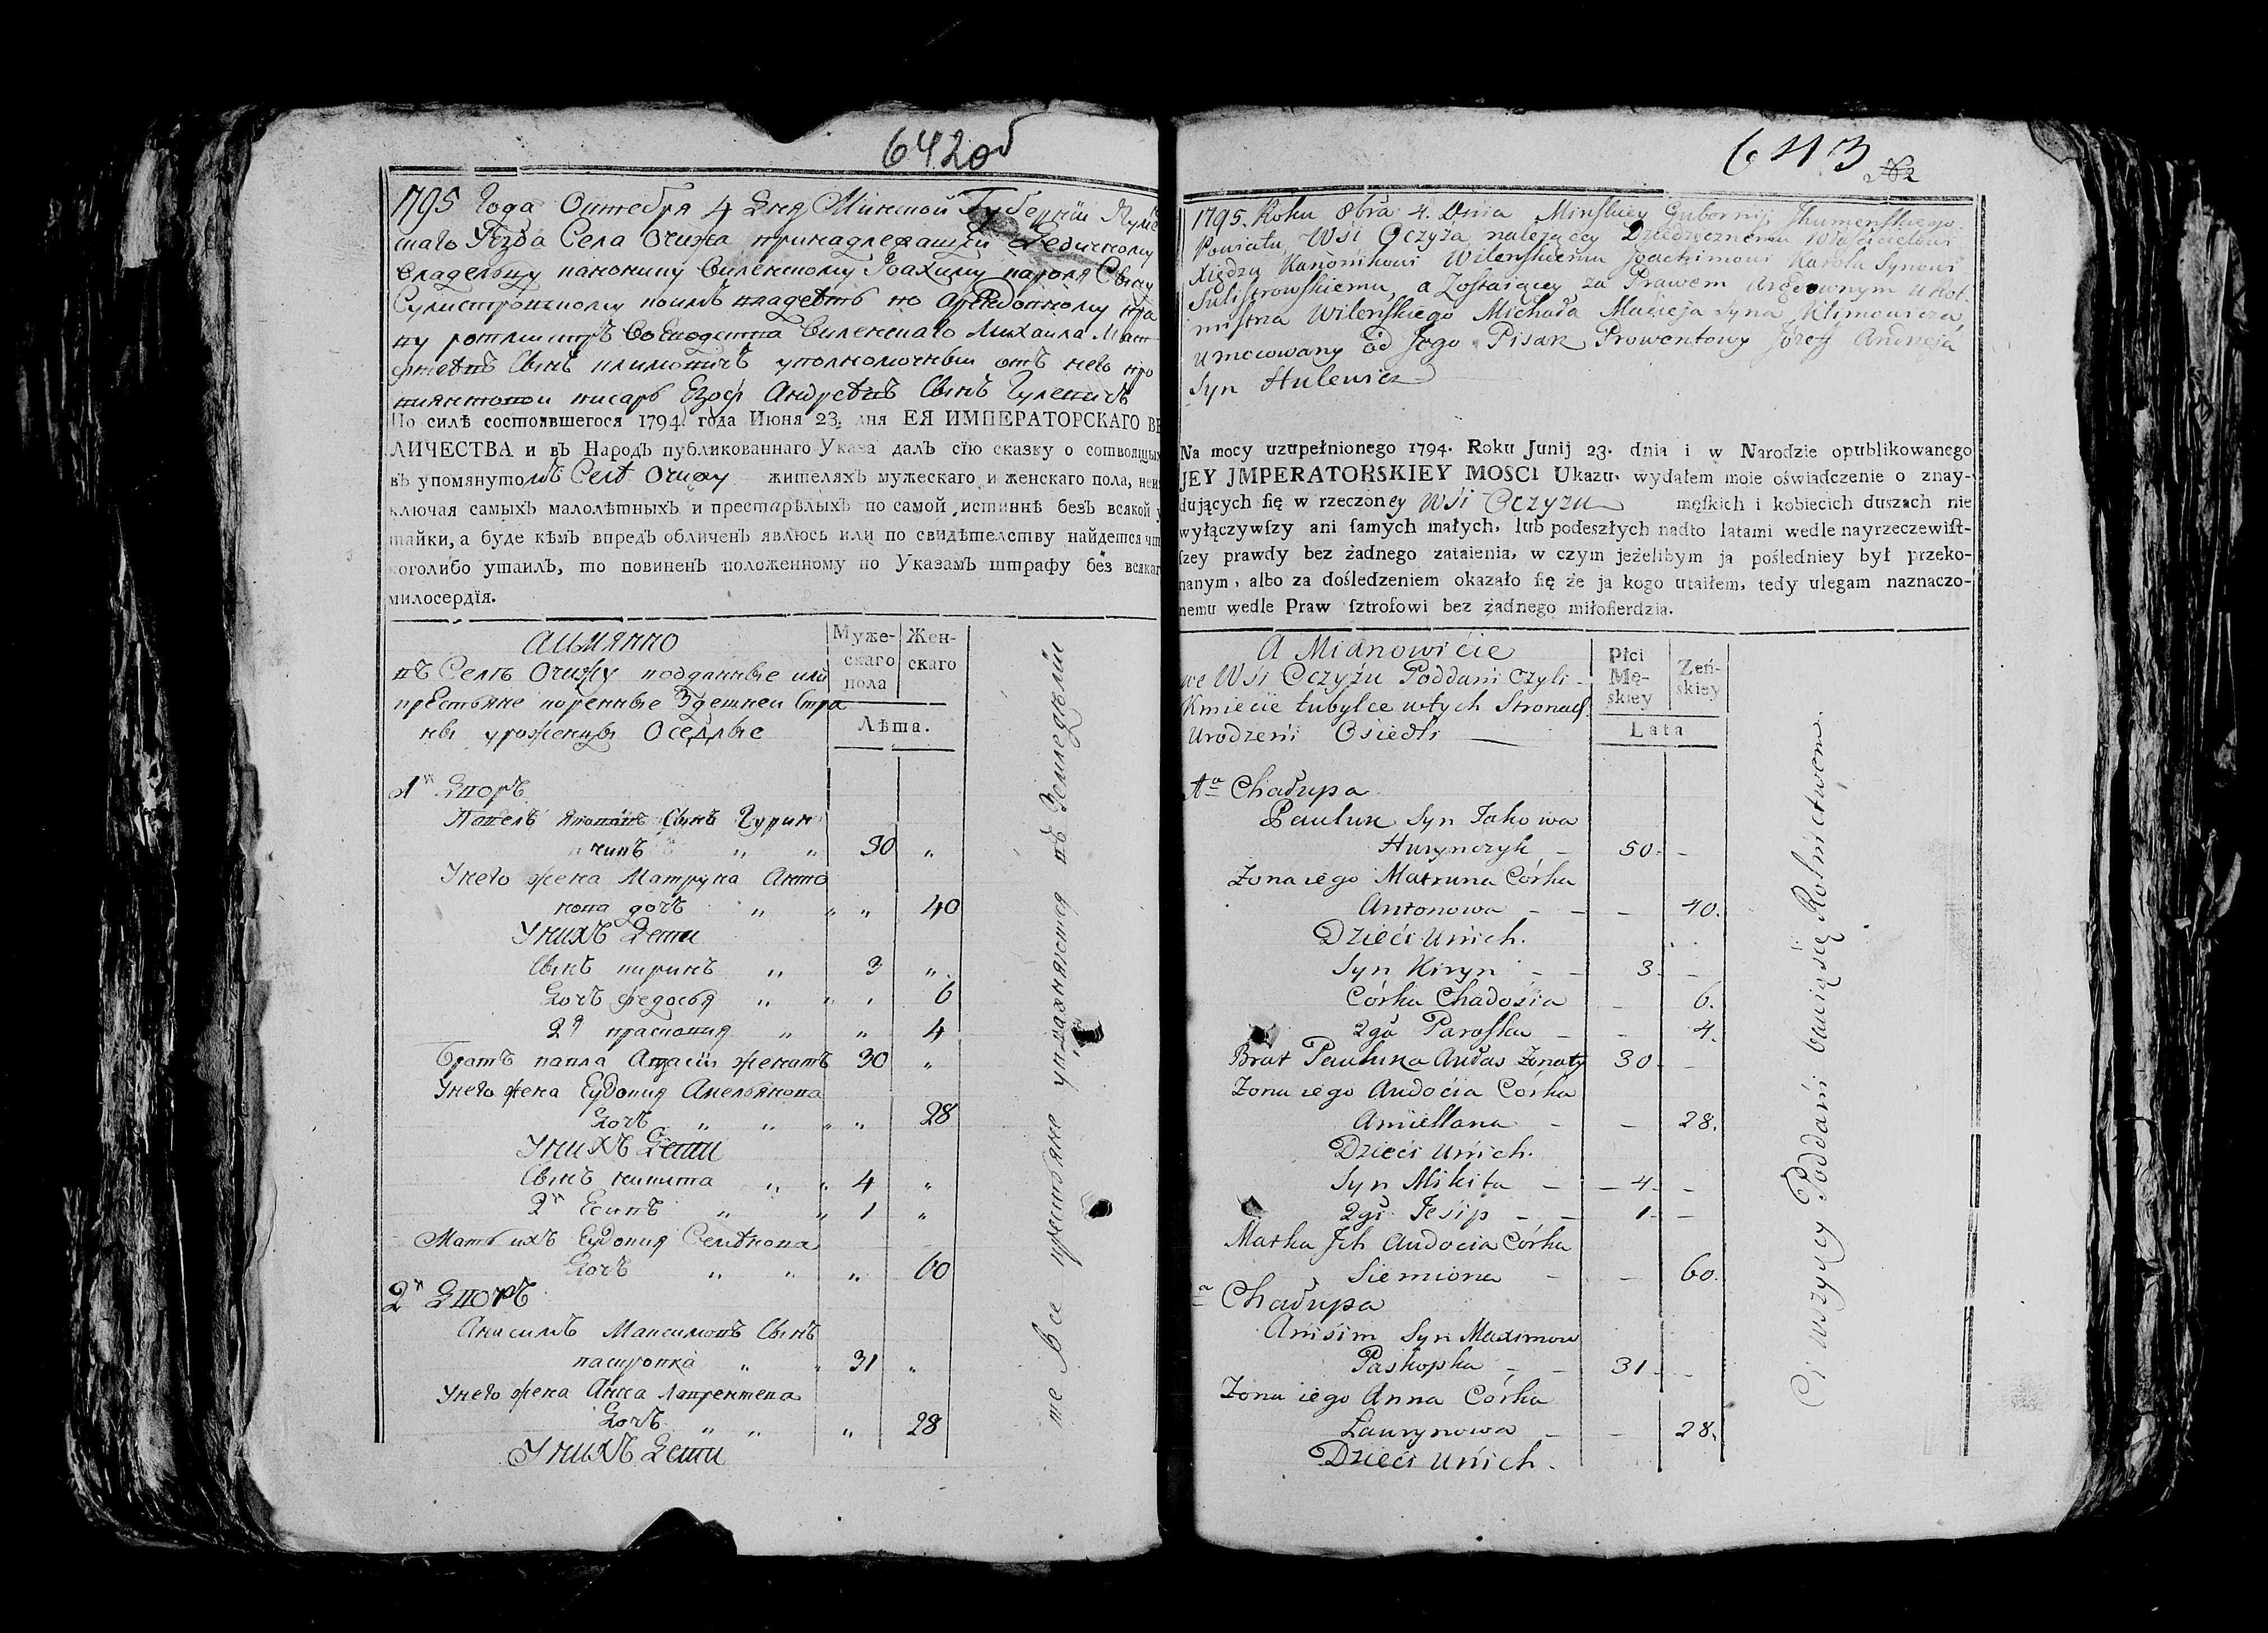 642об
1795 Года Октебря 4 Дня Минской Губернїи Игуме
скаго Уезда Села Очижа принадлежащеи Дедичному
владельцу канонику виленскому Иоахиму кароля Сыну
Сулистровскому коимъ владеетъ по Арендовному пра
ву ротмистръ воеводства виленскаго Михаила Мат
фтевъ Сынъ климовичъ уполномочныи отъ него про
виантовои писарь Езоф Андреевъ Сынъ Гулевичъ
По силѣ состоявшегося 1794. года Июня 23. дня ЕЯ ИМПЕРАТОРСКАГО ВЕ
ЛИЧЕСТВА и въ Народъ публикованнаго Указа далъ сїю сказку о сотвоящых
въ упомянутомъ Селѣ Очижу жителяхъ мужескаго и женскаго пола, неис
ключая самыхъ малолѣтныхъ и престарѣлыхъ по самой истиннѣ безъ всякой у
тайки, а буде кѣмъ впредь обличенъ явлюсь или по свидѣтелству найдется что
коголибо утаилъ, то повиненъ положенному по Указамъ штрафу без всякаго
милосердїя.
аимянно
въ Селѣ Очижу подданные или
крестьяне коренные Здешнеи Стра
ны уроженцы Оседлые
Муже-
скаго
пола
Жен-
скаго
Лѣта.
1й Дворъ
Павелъ Яковлевъ Сынъ Гурин
чикъ " " 50 "
Унего жена Матруна Анто
нова дочь " " " 40
Унихъ Дети
Сынъ кирикъ " 3 "
Дочь федосья " " " 6
2я прасковия " " 4
Братъ павла Авдасiй женатъ 30 "
Унего жена Еудокия Амельянова
Дочь " " " " 28
Унихъ Дети
Сынъ никита " " 4 "
2й Есипъ " " 1 "
Мать ихъ Еудокия Семенова
Дочь " " " 60
2й Дворъ
Анисимъ Максимовъ Сынъ
паскропка " " 31 "
Унего жена Анна Лаврентева
Дочь " " " 28
Унихъ Дети
те все крестьяне упражняются въ Земледелїи
643
№2
1795. Roku 8bra 4. Dnia Minskiey Gubernij Jhumenskiego
Powiatu Wsi Oczyża należącey Dziedzicznemu Włascicielowi
Xiędzu Kanonikowi Wilenskiemu Joachimowi Karola Synowi
Sulistrowskiemu, a Zostaiącey za Prawem Arędownym u Rot-
mistrza Wileńskiego Michała Macieja Syna Klimowicza,
umocowany od Jego Pisarz Prowentowy Józeff Andrzeja
Syn Hulewicz
Na mocy uzupełnionego 1794. Roku Junij 23. dnia i w Narodzie opublikowanego
JEY JMPERATORSKIEY MOSCI Ukazu, wydałem moie oświadczenie o znay-
dujących ſię w rzeczoney Wśi Oczyżu męſkich i kobiecich duszach nie
wyłączywſzy ani ſamych małych, lub podeszłych nadto latami wedle nayrzeczewiſt-
ſzey prawdy bez żadnego zataienia, w czym jeżelibym ja pośledniey był przeko-
nanym, albo za dośledzeniem okazało ſię że ja kogo utaiłem, tedy ulegam naznaczo-
nemu wedle Praw ſztrofowi bez żadnego miłoſierdzia.
A Mianowićie
we Wśi Oczyżu Poddani Czyli
Kmiećie tubylce wtych Stronach
Urodzeni Osiedli
Płci
Mę-
skiey
Zeń-
skiey
Lata
1a Chałupa
Pauluk Syn Jakowa
Hurynczyk - 50. -
Zona iego Matruna Córka
Antonowa - - - 40.
Dzieći Unich.
Syn Kiryn - - 3. -
Córka Chadosia - 6.
2ga Paraska - - 4.
Brat Pauluka Audas Zonaty 30. -
Zona iego Audocia Córka
Amiellana - - 28.
Dzieći Unich.
Syn Mikita - - 4. -
2gi Jesip - - 1. -
Matka Jch Audocia Córka
Siemiona - - 60.
a Chałupa
Anisim Syn Maximow
Paskopka - - 31. -
Zona iego Anna Córka
Laurynowa - - 28.
Dzieći Unich.
Ci wszyscy Poddani bawią się Rolnictwem.